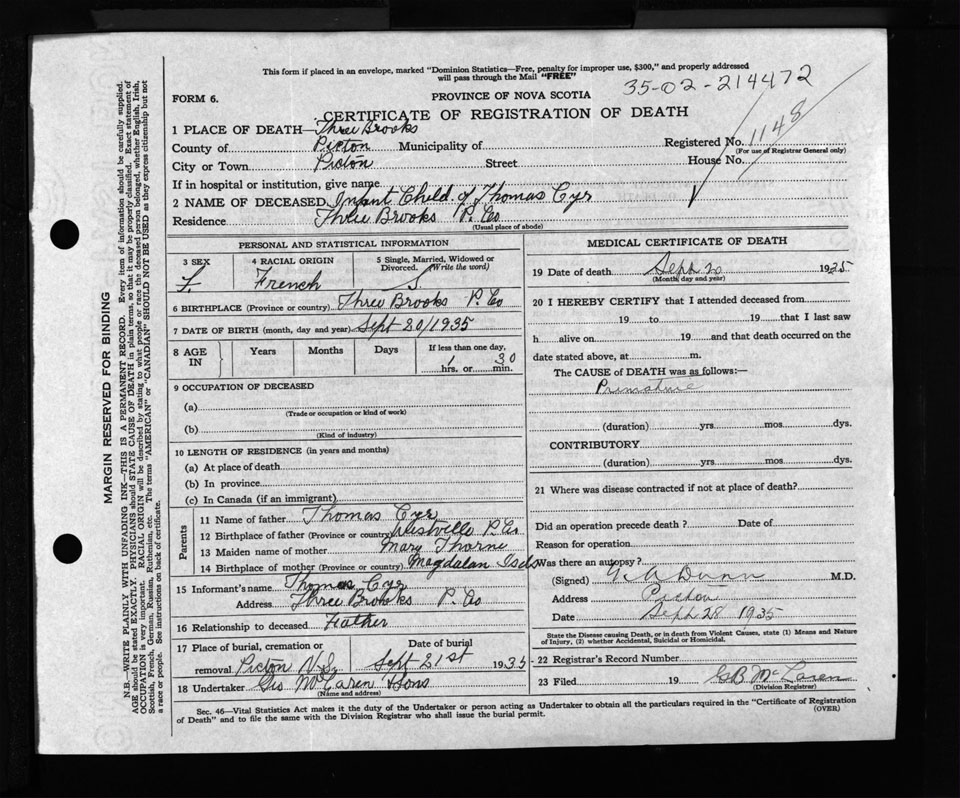 This form if placed in an envelope, marked "Dominion Statistics—Free, penalty for improper use, $300," and properly addressed
will pass through the Mail "FREE"
35-02-214472
FORM 6.
PROVINCE OF NOVA SCOTIA
CERTIFICATE OF REGISTRATION OF DEATH
1148
1 PLACE OF DEATH—Three Brooks
Registered No.
(For use of Registrar General only)
County of Picton Municipality of
City or Town Picton Street House No.
If in hospital or institution, give name
2 NAME OF DECEASED Infant Child of Thomas Cyr
Residence Three Brooks P. Co
(Usual place of abode)
PERSONAL AND STATISTICAL INFORMATION
3 SEX 4 RACIAL ORIGIN 5 Single, Married, Widowed or
Divorced. (Write the word)
F. French S.
6 BIRTHPLACE (Province or country) Three Brooks P. Co
7 DATE OF BIRTH (month, day and year) Sept 20/1935
8 AGE IN Years Months Days If less than one day,
1 hrs. or 30 min.
9 OCCUPATION OF DECEASED
(a)
(Trade or occupation or kind of work)
(b)
(Kind of industry)
10 LENGTH OF RESIDENCE (in years and months)
(a) At place of death
(b) In province
(c) In Canada (if an immigrant)
Parents
11 Name of father Thomas Cyr
12 Birthplace of father (Province or country) Westville P. Co
13 Maiden name of mother Mary Thorne
14 Birthplace of mother (Province or country) Magdalan Islds
15 Informant's name Thomas Cyr
Address Three Brooks P. Co
16 Relationship to deceased Father
17 Place of burial, cremation or Date of burial
removal Picton N.S. Sept 21st 1935
18 Undertaker Geo McLaren & Sons
(Name and address)
MEDICAL CERTIFICATE OF DEATH
19 Date of death Sept 20 1935
(Month, day and year)
20 I HEREBY CERTIFY that I attended deceased from
19 to 19 that I last saw
h alive on 19 and that death occurred on the
date stated above, at m.
The CAUSE of DEATH was as follows:—
Primature
(duration) yrs mos dys.
CONTRIBUTORY
(duration) yrs mos dys.
21 Where was disease contracted if not at place of death?
Did an operation precede death? Date of
Reason for operation
Was there an autopsy?
(Signed) Dunn M.D.
Address Picton
Date Sept 28 1935
State the Disease causing Death, or in death from Violent Causes, state (1) Means and Nature
of Injury, (2) whether Accidental, Suicidal or Homicidal.
22 Registrar's Record Number
23 Filed 19 G B McLaren
(Division Registrar)
Sec. 46—Vital Statistics Act makes it the duty of the Undertaker or person acting as Undertaker to obtain all the particulars required in the "Certificate of Registration
of Death" and to file the same with the Division Registrar who shall issue the burial permit.
(OVER)
MARGIN RESERVED FOR BINDING
N.B.—WRITE PLAINLY WITH UNFADING INK—THIS IS A PERMANENT RECORD. Every item of information should be carefully supplied.
AGE should be stated EXACTLY. PHYSICIANS should STATE CAUSE OF DEATH in plain terms, so that it may be properly classified. Exact statement of
OCCUPATION is very important. RACIAL ORIGIN will be described by stating to what people or race the deceased person belonged, whether English, Irish,
Scottish, French, German, Russian, Ruthenian, etc. The terms "AMERICAN" or "CANADIAN" SHOULD NOT BE USED as they express citizenship but not
a race or people. See instructions on back of certificate.